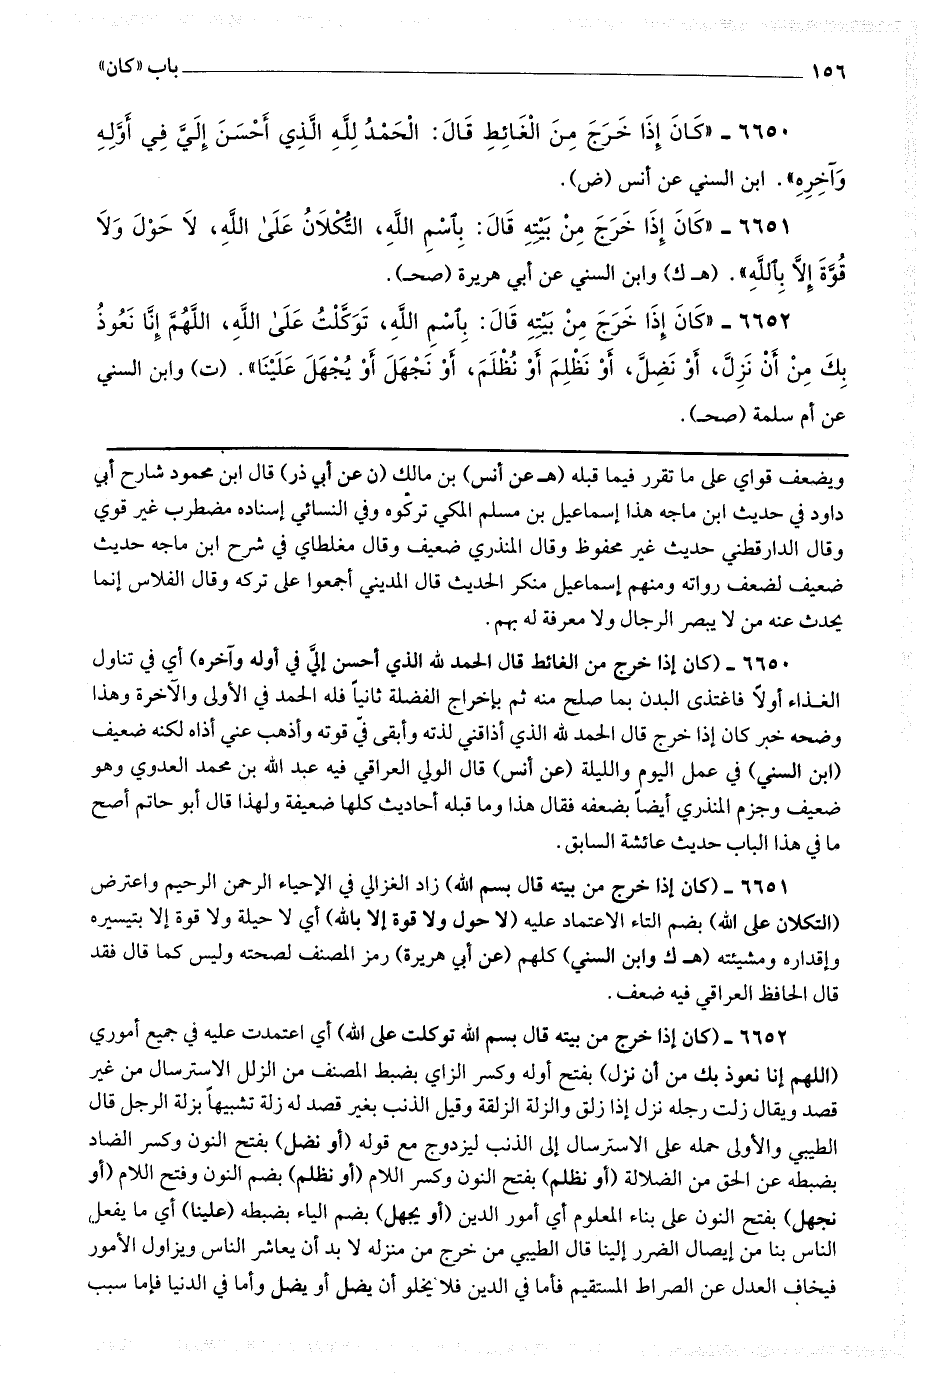 ١٥٦ باب «كان»
٦٦٥٠ ـ «كَانَ إِذَا خَرَجَ مِنَ الْغَائِطِ قَالَ: الْحَمْدُ لِلَّهِ الَّذِي أَحْسَنَ إِلَيَّ فِي أَوَّلِهِ
وَآخِرِهِ». ابن السني عن أنس (ض).
٦٦٥١ ـ «كَانَ إِذَا خَرَجَ مِنْ بَيْتِهِ قَالَ: بِٱسْمِ اللَّهِ، التُّكْلَانُ عَلَىٰ اللَّهِ، لَا حَوْلَ وَلَا
قُوَّةَ إِلَّا بِٱللَّهِ». (هـ ك) وابن السني عن أبي هريرة (صحـ).
٦٦٥٢ ـ «كَانَ إِذَا خَرَجَ مِنْ بَيْتِهِ قَالَ: بِٱسْمِ اللَّهِ، تَوَكَّلْتُ عَلَىٰ اللَّهِ، اللَّهُمَّ إِنَّا نَعُوذُ
بِكَ مِنْ أَنْ نَزِلَّ، أَوْ نَضِلَّ، أَوْ نَظْلِمَ أَوْ نُظْلَمَ، أَوْ نَجْهَلَ أَوْ يُجْهَلَ عَلَيْنَا». (ت) وابن السني
عن أم سلمة (صحـ).
ويضعف قواي على ما تقرر فيما قبله (هـ عن أنس) بن مالك (ن عن أبي ذر) قال ابن محمود شارح أبي
داود في حديث ابن ماجه هذا إسماعيل بن مسلم المكي تركوه وفي النسائي إسناده مضطرب غير قوي
وقال الدارقطني حديث غير محفوظ وقال المنذري ضعيف وقال مغلطاي في شرح ابن ماجه حديث
ضعيف لضعف رواته ومنهم إسماعيل منكر الحديث قال المديني أجمعوا على تركه وقال الفلاس إنما
يحدث عنه من لا يبصر الرجال ولا معرفة له بهم.
٦٦٥٠ ـ (كان إذا خرج من الغائط قال الحمد لله الذي أحسن إليَّ في أوله وآخره) أي في تناول
الغذاء أولاً فاغتذى البدن بما صلح منه ثم بإخراج الفضلة ثانياً فله الحمد في الأولى والآخرة وهذا
وضحه خبر كان إذا خرج قال الحمد لله الذي أذاقني لذته وأبقى فيّ قوته وأذهب عني أذاه لكنه ضعيف
(ابن السني) في عمل اليوم والليلة (عن أنس) قال الولي العراقي فيه عبد الله بن محمد العدوي وهو
ضعيف وجزم المنذري أيضاً بضعفه فقال هذا وما قبله أحاديث كلها ضعيفة ولهذا قال أبو حاتم أصح
ما في هذا الباب حديث عائشة السابق.
٦٦٥١ ـ (كان إذا خرج من بيته قال بسم الله) زاد الغزالي في الإحياء الرحمن الرحيم واعترض
(التكلان على الله) بضم التاء الاعتماد عليه (لا حول ولا قوة إلا بالله) أي لا حيلة ولا قوة إلا بتيسيره
وإقداره ومشيئته (هـ ك وابن السني) كلهم (عن أبي هريرة) رمز المصنف لصحته وليس كما قال فقد
قال الحافظ العراقي فيه ضعف.
٦٦٥٢ ـ (كان إذا خرج من بيته قال بسم الله توكلت على الله) أي اعتمدت عليه في جميع أموري
(اللهم إنا نعوذ بك من أن نزل) بفتح أوله وكسر الزاي بضبط المصنف من الزلل الاسترسال من غير
قصد ويقال زلت رجله نزل إذا زلق والزلة الزلقة وقيل الذنب بغير قصد له زلة تشبيهاً بزلة الرجل قال
الطيبي والأولى حمله على الاسترسال إلى الذنب ليزدوج مع قوله (أو نضل) بفتح النون وكسر الضاد
بضبطه عن الحق من الضلالة (أو نظلم) بفتح النون وكسر اللام (أو نظلم) بضم النون وفتح اللام (أو
نجهل) بفتح النون على بناء المعلوم أي أمور الدين (أو يجهل) بضم الياء بضبطه (علينا) أي ما يفعل
الناس بنا من إيصال الضرر إلينا قال الطيبي من خرج من منزله لا بد أن يعاشر الناس ويزاول الأمور
فيخاف العدل عن الصراط المستقيم فأما في الدين فلا يخلو أن يضل أو يضل وأما في الدنيا فإما سبب